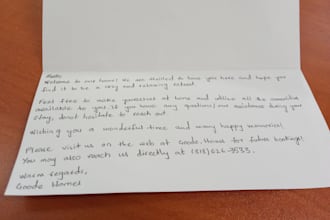 Welcome to our home! We are thrilled to have you here and hope you
find it to be a cozy and relaxing retreat.
Feel free to make yourself at home and utilize all the amenities
available to you. If you have any questions/need assistance during your
stay, do not hesitate to reach out.
Wishing you a wonderful time and many happy memories!
Please visit us on the web at Goode.Homes for future bookings!
You may also reach us directly at
Warm regards,
Goode Homes